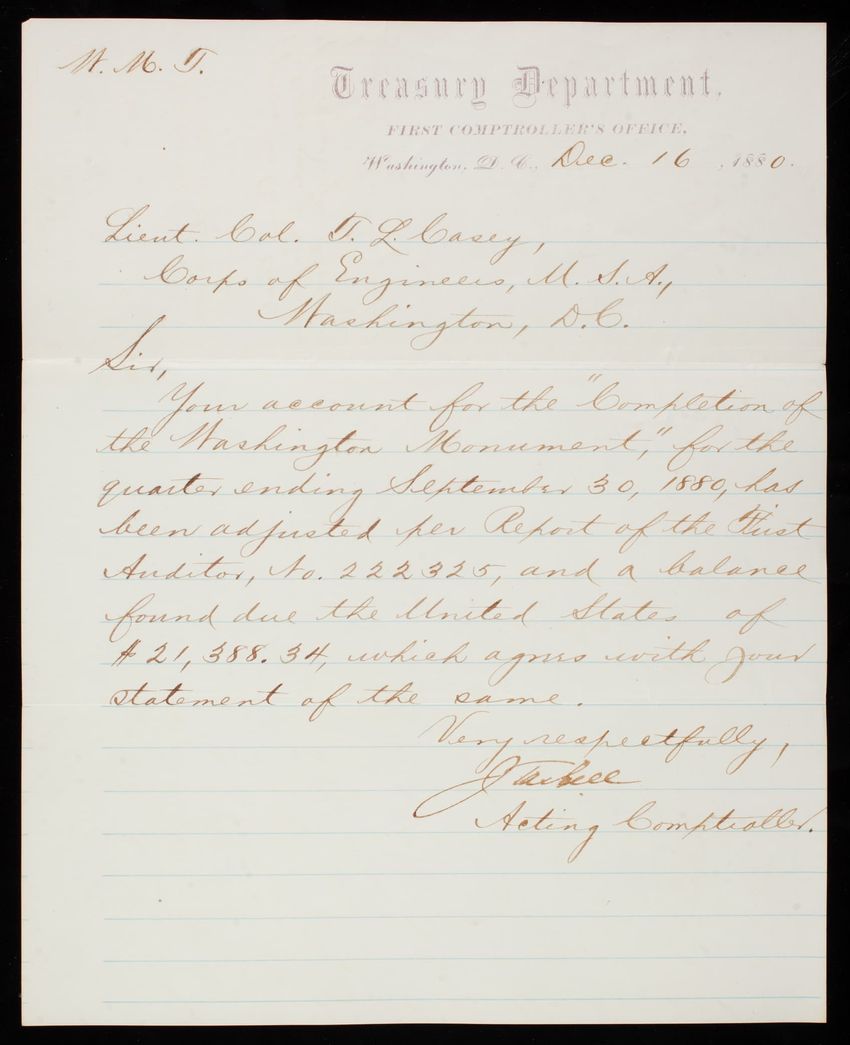 W. M. T.
Treasury Department,
FIRST COMPTROLLER'S OFFICE,
Washington, D. C., Dec. 16, 1880.
Lieut. Col. T. L. Casey,
Corps of Engineers, U. S. A.,
Washington, D.C.
Sir,
Your account for the "Completion of
the Washington Monument," for the
quarter ending September 30, 1880, has
been adjusted per Report of the First
Auditor, No. 222325, and a balance
found due the United States of
$21,388.34, which agrees with your
statement of the same.
Very respectfully,
J Tarbell
Acting Comptroller.